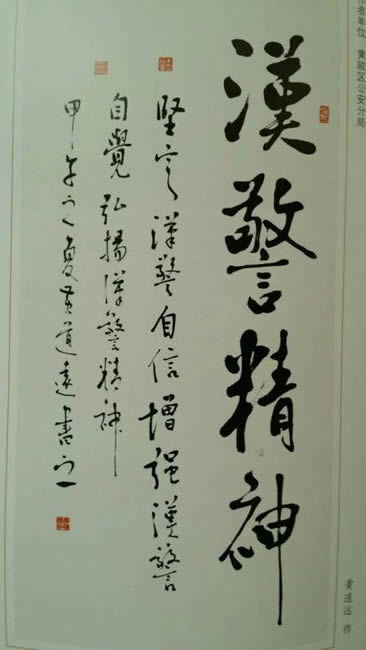 作者单位 黄陂区公安分局
漢警精神
坚定漢警自信增强漢警
自覺弘揚漢警精神
甲午之夏黄道遠書之
黄道远 作